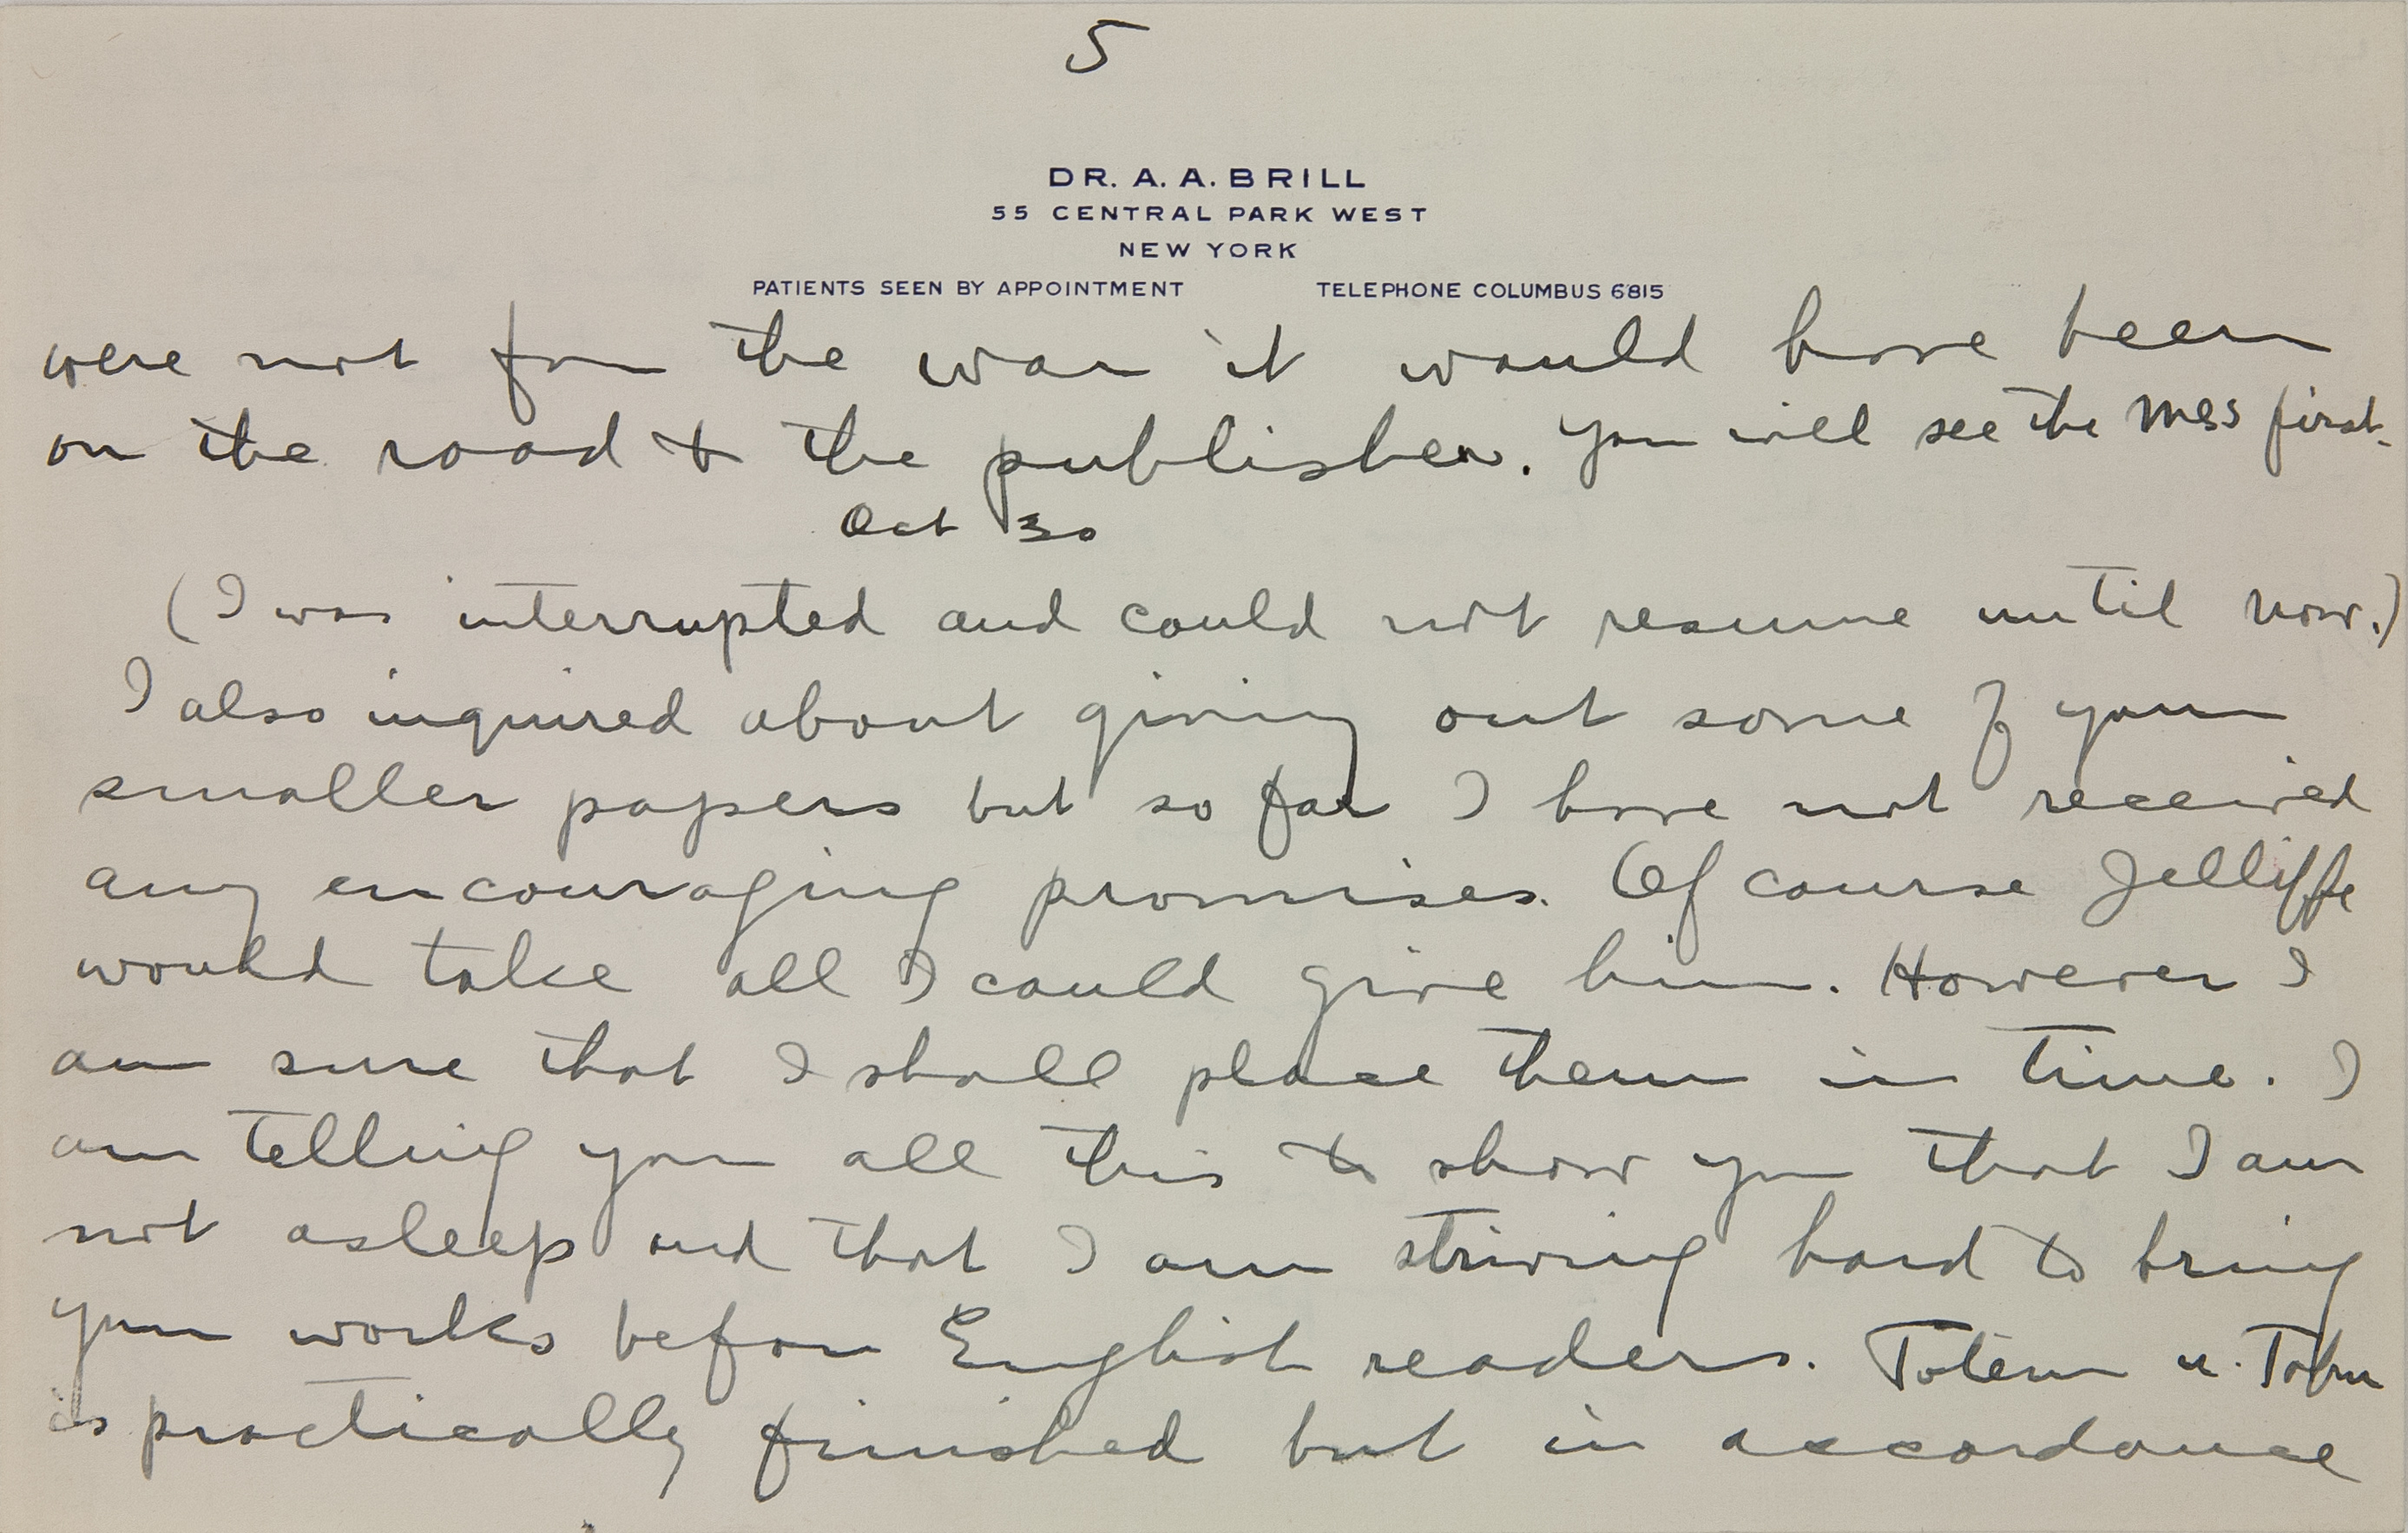 5
DR. A. A. BRILL
55 CENTRAL PARK WEST
NEW YORK
PATIENTS SEEN BY APPOINTMENT TELEPHONE COLUMBUS 6815
were not for the war it would have been
on the road to the publisher. You will see the Mss first.
Oct 30
(I was interrupted and could not resume until now.)
I also inquired about giving out some of your
smaller papers but so far I have not received
any encouraging promises. Of course Jelliffe
would take all I could give him. However I
am sure that I shall place them in time. I
am telling you all this to show you that I am
not asleep and that I am striving hard to bring
your works before English readers. Totem u. Tabu
is practically finished but in accordance